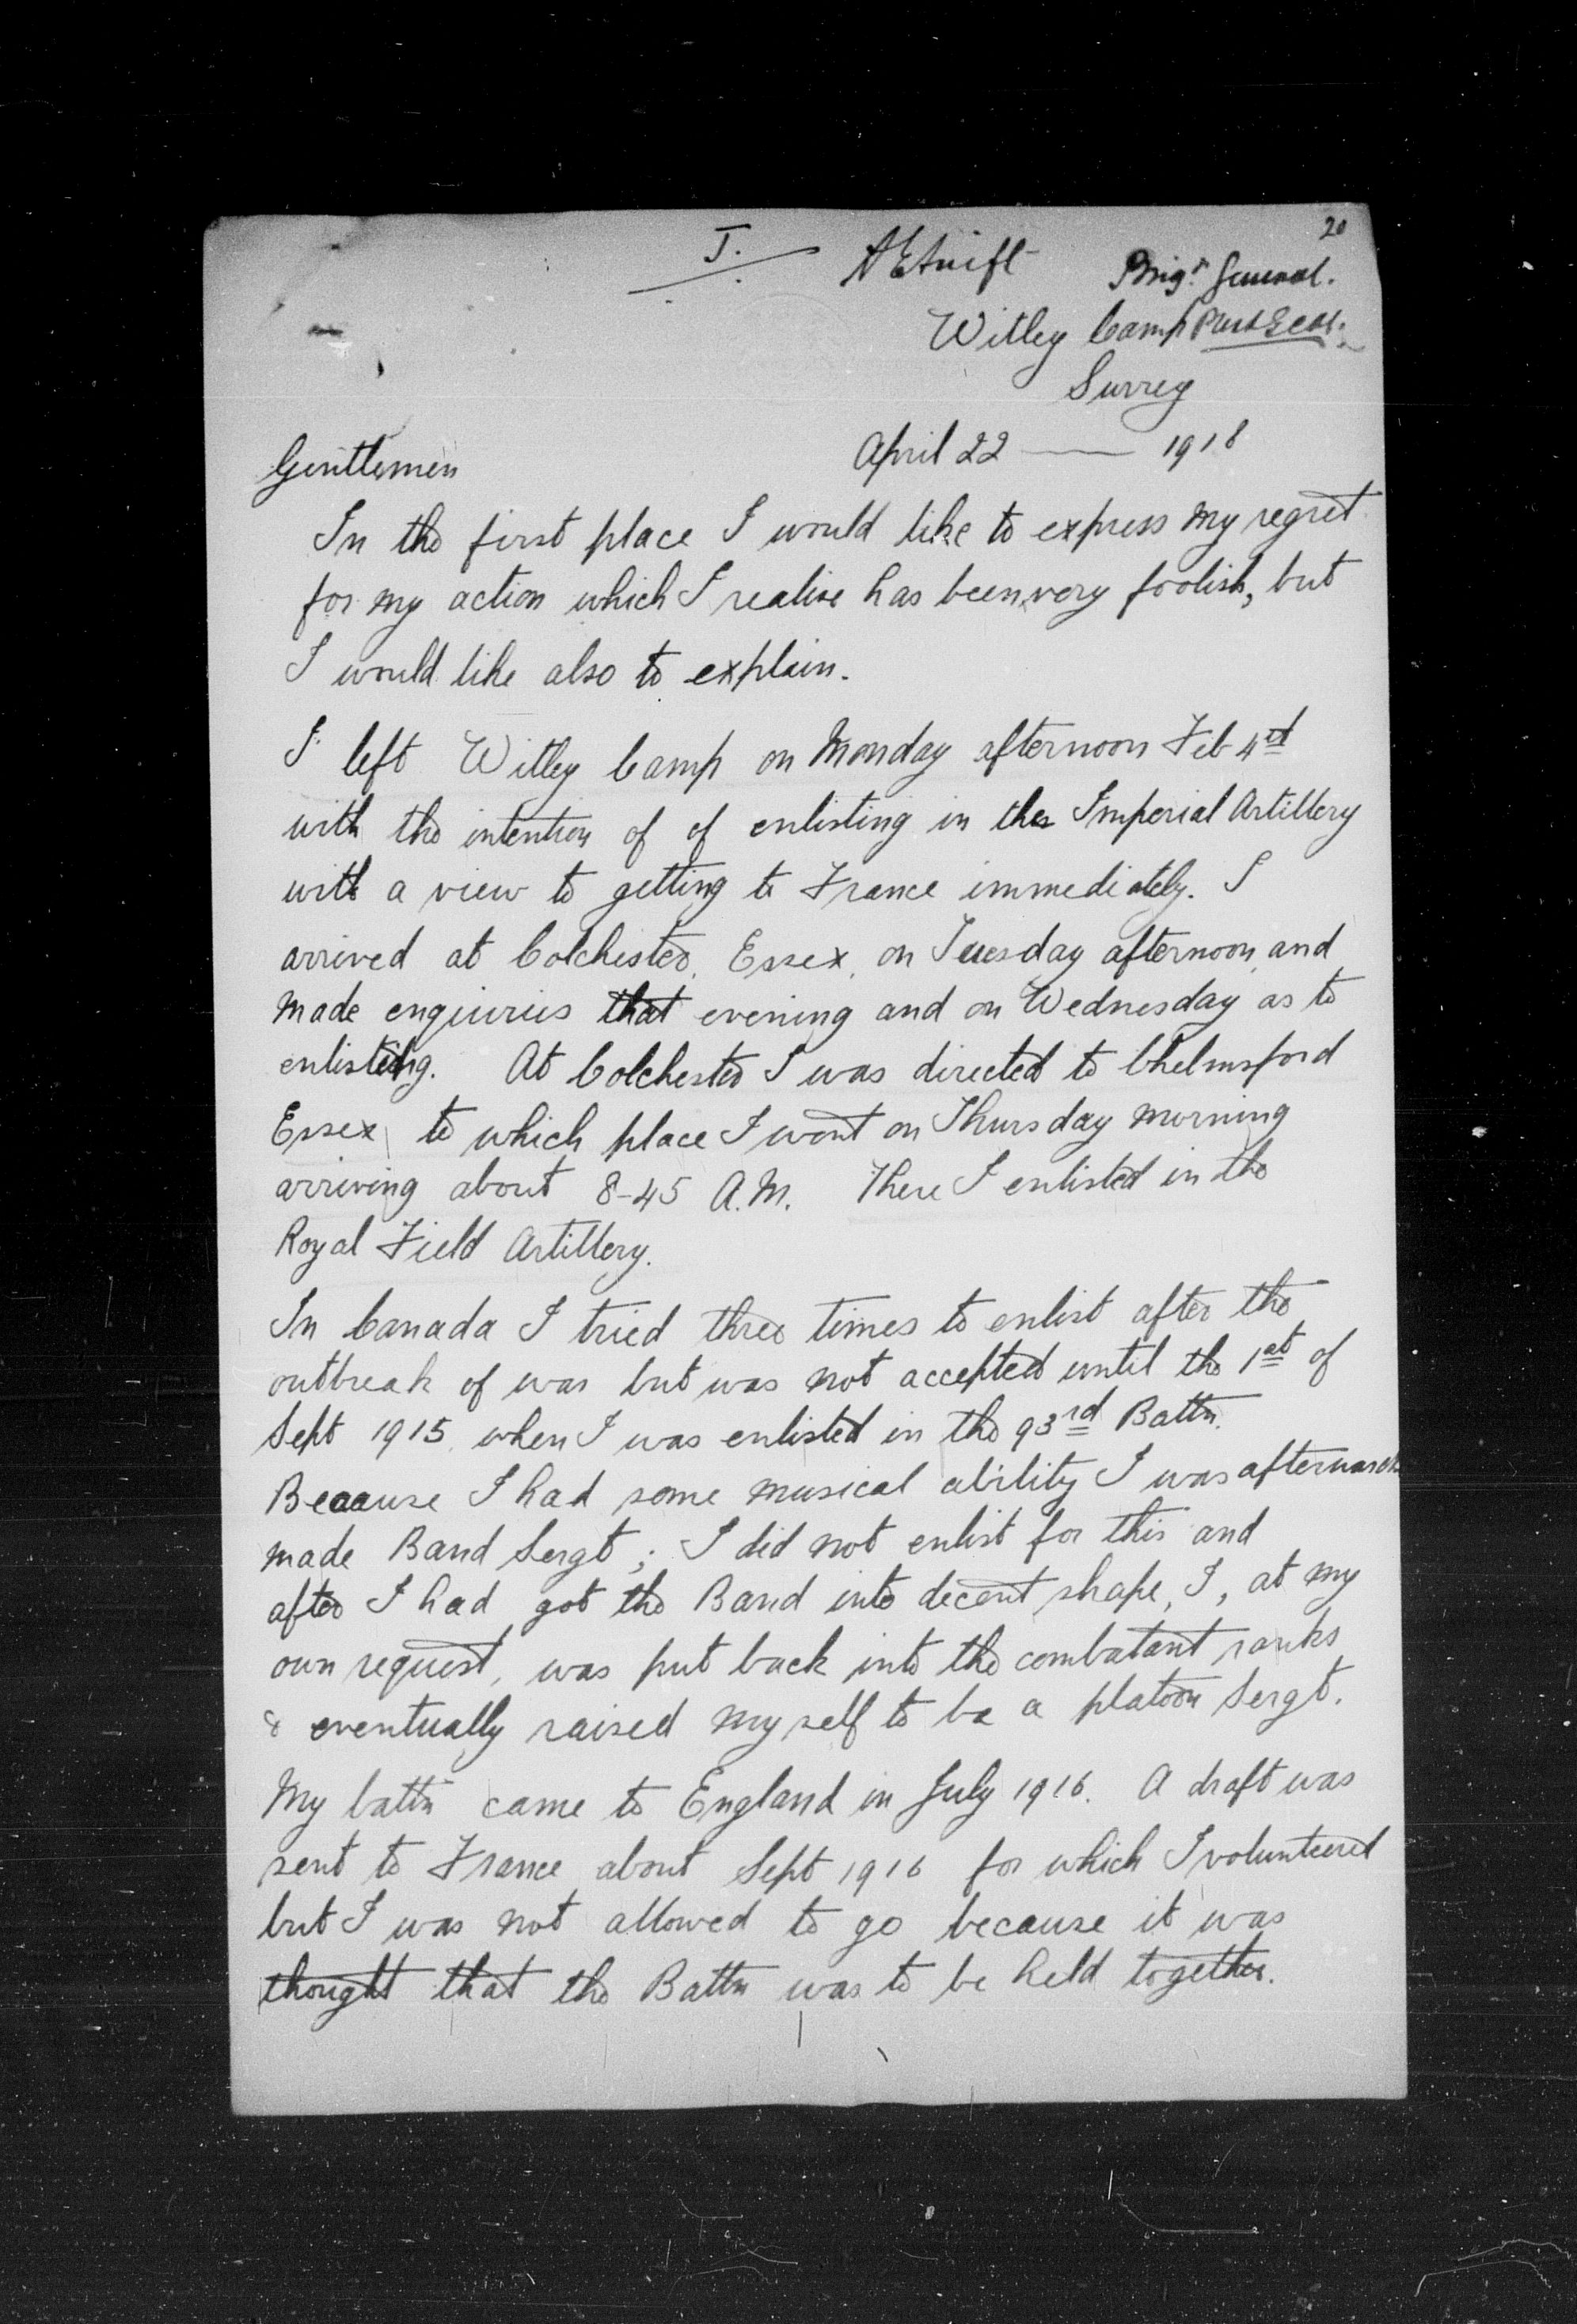 20
J. AESwift Brigr General.
Witley Camp
Surrey
Gentlemen April 22 — 1918
In the first place I would like to express my regret
for my action which I realise has been very foolish, but
I would like also to explain.
I left Witley Camp on Monday afternoon Feb 4th
with the intention of of enlisting in the Imperial Artillery
with a view to getting to France immediately. I
arrived at Colchester, Essex, on Tuesday afternoon, and
made enquiries that evening and on Wednesday as to
enlisting. At Colchester I was directed to Chelmsford
Essex to which place I went on Thursday morning
arriving about 8-45 A.M. There I enlisted in the
Royal Field Artillery.
In Canada I tried three times to enlist after the
outbreak of war but was not accepted until the 1st of
Sept 1915 when I was enlisted in the 93rd Battn.
Because I had some musical ability I was afterwards
made Band Sergt; I did not enlist for this and
after I had got the Band into decent shape, I, at my
own request, was put back into the combatant ranks
& eventually raised myself to be a platoon Sergt.
My battn came to England in July 1916. A draft was
sent to France about Sept 1916 for which I volunteered
but I was not allowed to go because it was
thought that the Battn was to be held together.